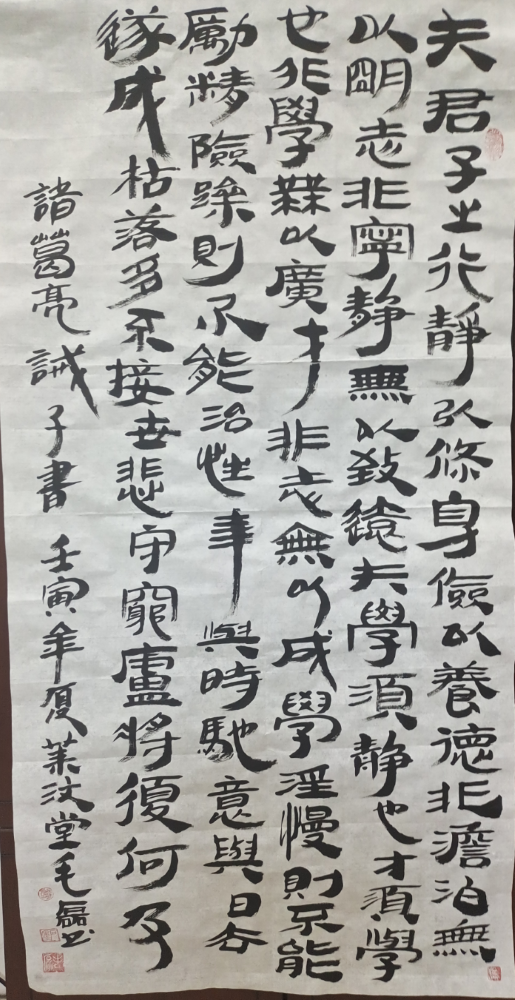 夫君子之行靜以修身儉以養德非澹泊無
以朙志非寧靜無以致遠夫學須静也才須學
也非學無以廣才非志無以成學淫慢則不能
勵精險躁則不能治性年與時馳意與日去
遂成枯落多不接世悲守窮廬將復何及
諸葛亮誡子書 壬寅年夏萊汶堂毛磊书